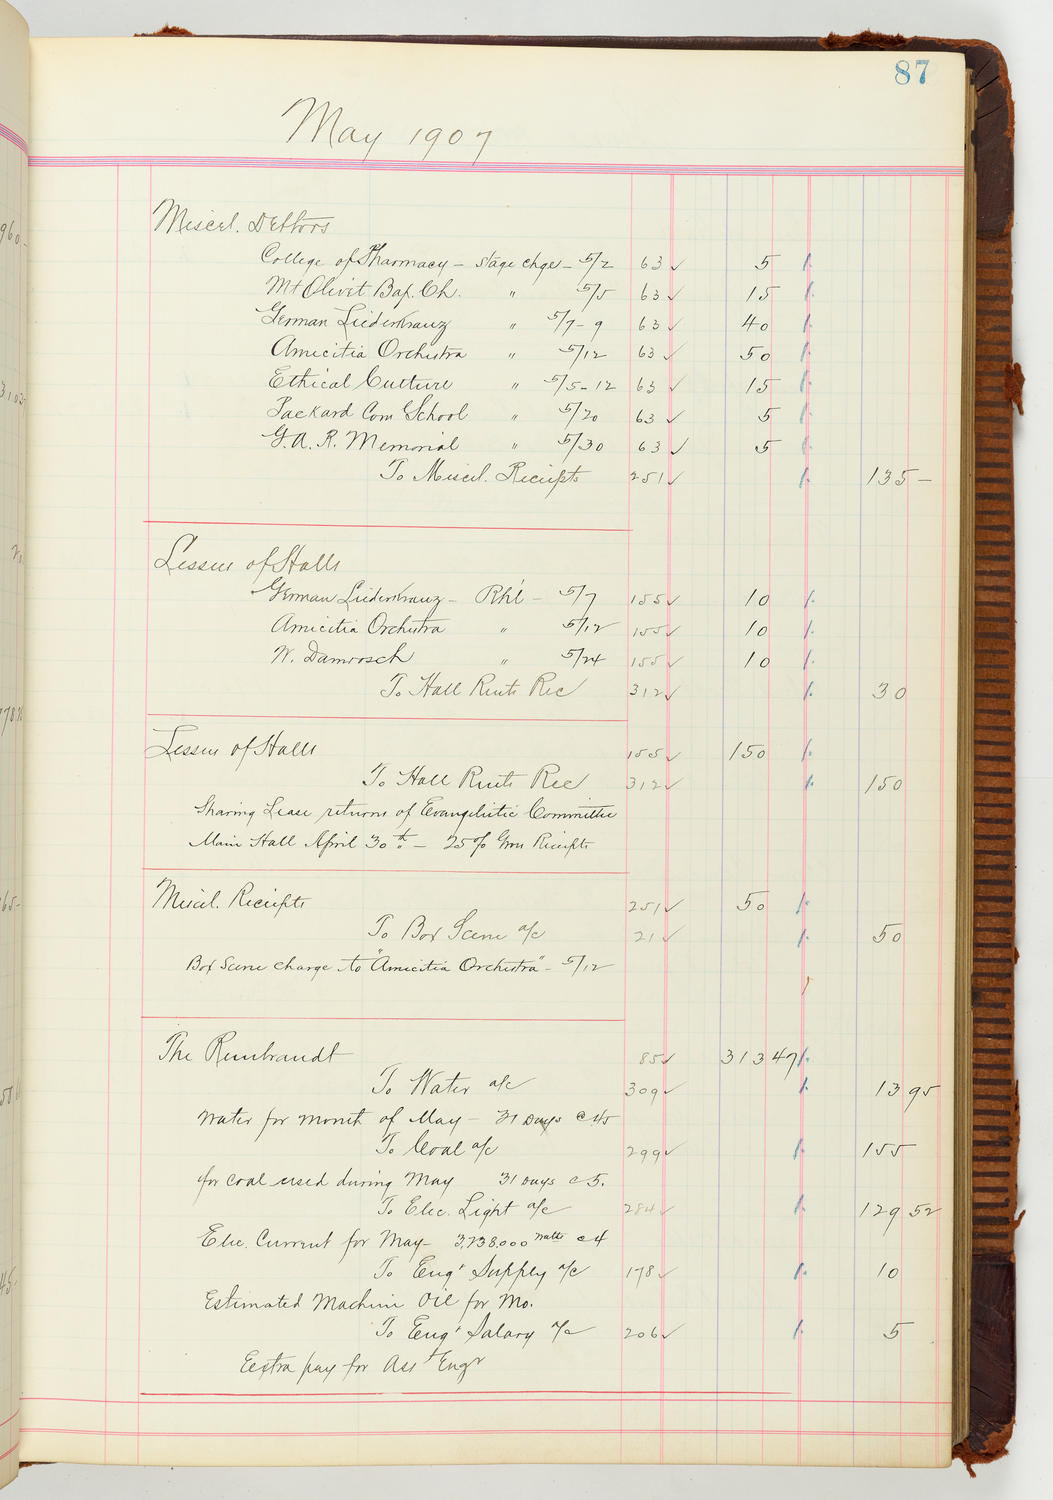 87
May 1907
Miscel. Debtors
College of Pharmacy - stage chge - 5/2 63 ✓ 5
Mt Olivet Bap. Ch. " 5/5 63 ✓ 15
German Liederkranz " 5/7-9 63 ✓ 40
Amicitia Orchestra " 5/12 63 ✓ 50
Ethical Culture " 5/5-12 63 ✓ 15
Packard Com School " 5/20 63 ✓ 5
G.A.R. Memorial " 5/30 63 ✓ 5
To Miscel. Receipts 251 ✓ 135 -
Lessees of Halls
German Liederkranz - Rh'l - 5/7 155 ✓ 10
Amicitia Orchestra " 5/12 155 ✓ 10
W. Damrosch " 5/24 155 ✓ 10
To Hall Rents Rec 312 ✓ 30
Lessees of Halls 155 ✓ 150
To Hall Rents Rec 312 ✓ 150
Sharing Lease returns of Evangelistic Committee
Main Hall April 30th - 25% Gross Receipts
Miscel. Receipts 251 ✓ 50
To Box Scene a/c 21 ✓ 50
Box Scene charge to "Amicitia Orchestra" - 5/12
The Rembrandt 85 ✓ 313 47
To Water a/c 309 ✓ 13 95
Water for month of May - 31 Days @ 45
To Coal a/c 299 ✓ 155
for coal used during May 31 Days @ 5.
To Elec. Light a/c 284 ✓ 129 52
Elec. Current for May - 3,238,000 watts @ 4
To Eng' Supply a/c 178 ✓ 10
Estimated Machine Oil for Mo.
To Eng' Salary a/c 206 ✓ 5
Extra pay for Asst Engr
960-